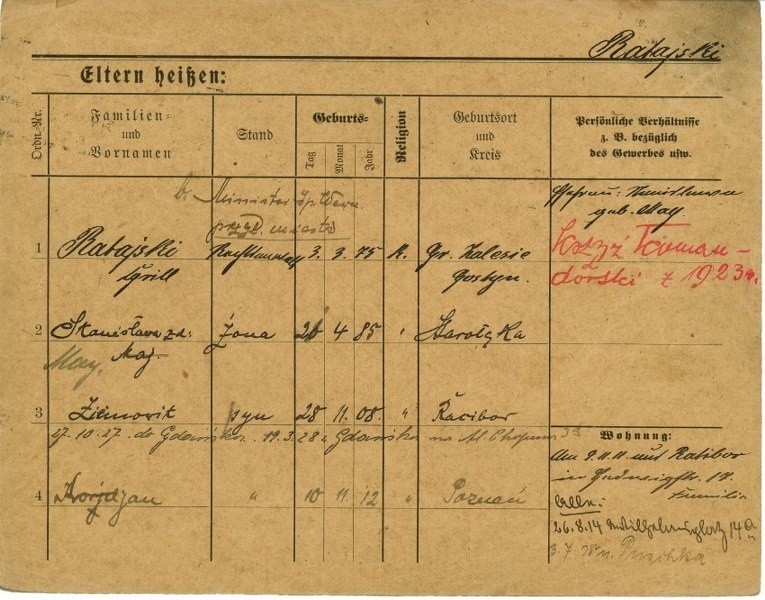 Ratajski
Eltern heißen:
Ordn.-Nr.
Familien- und Vornamen
Stand
Geburts-
Tag
Monat
Jahr
Religion
Geburtsort und Kreis
Persönliche Verhältnisse z. B. bezüglich des Gewerbes usw.
b. Minister
miasta
Ehefrau:
geb. May
1 Ratajski Rechtsanwalt 3. 3. 75 k. Gr. Zalesie
Cyrill Gostyn.
Krzyż Koman-
dorski z 1923 r.
2 Stanisława zd: żona 20 4 85 " Starołęka
May, Maj.
3 Ziemowit syn 28 11. 08. " Racibor
17.10.27. do Gdańska. 19.3.28 z Gdańska na Al. Chopina
Wohnung:
Am 9.11.11 aus Ratibor
in
Familie
4 " 10 11 12 " Poznań
26.8.14 Wilhelmsplatz 14a